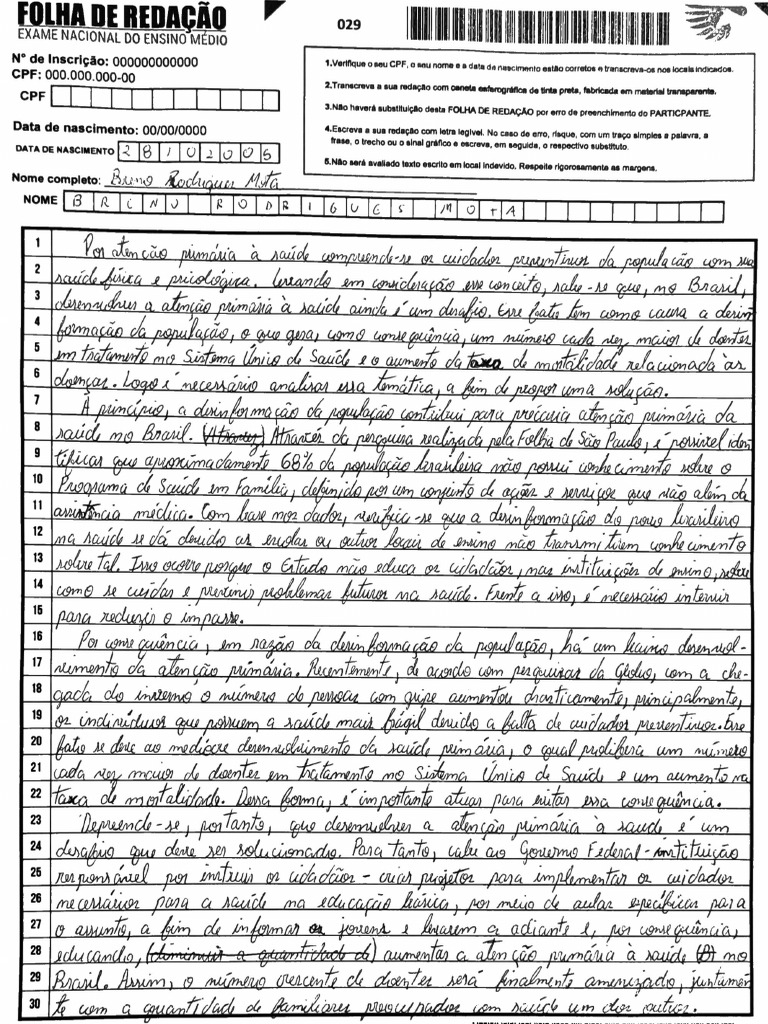 FOLHA DE REDAÇÃO
EXAME NACIONAL DO ENSINO MÉDIO
029
N° de Inscrição: 000000000000
CPF: 000.000.000-00
CPF
Data de nascimento: 00/00/0000
DATA DE NASCIMENTO 28102005
Nome completo: Breno Rodrigues Mota
NOME BRENO RODRIGUES MOTA
1.Verifique o seu CPF, o seu nome e a data de nascimento estão corretos e transcreva-os nos locais indicados.
2.Transcreva a sua redação com caneta esferográfica de tinta preta, fabricada em material transparente.
3.Não haverá substituição desta FOLHA DE REDAÇÃO por erro de preenchimento do PARTICPANTE.
4.Escreva a sua redação com letra legível. No caso de erro, risque, com um traço simples a palavra, a
frase, o trecho ou o sinal gráfico e escreva, em seguida, o respectivo substituto.
5.Não será avaliado texto escrito em local indevido. Respeite rigorosamente as margens.
1 Por atenção primária à saúde compreende-se os cuidados preventivos da população com sua
2 saúde física e psicológica. Levando em consideração esse conceito, sabe-se que, no Brasil,
3 desenvolver a atenção primária à saúde ainda é um desafio. Esse fato tem como causa a desin
4 formação da população, o que gera, como consequência, um número cada vez maior de doentes
5 em tratamento no Sistema Único de Saúde e o aumento da taxa de mortalidade relacionada às
6 doenças. Logo é necessário analisar essa temática, a fim de propor uma solução.
7 À princípio, a desinformação da população contribui para precária atenção primária da
8 saúde no Brasil. (Atravez) Através da pesquisa realizada pela Folha de São Paulo, é possível iden
9 tificar que aproximadamente 68% da população brasileira não possui conhecimento sobre o
10 Programa de Saúde em Família, definido por um conjunto de ações e serviços que vão além da
11 assistência médica. Com base nos dados, verifica-se que a desinformação do povo brasileiro
12 na saúde se dá devido as escolas ou outros locais de ensino não transmitirem conhecimento
13 sobre tal. Isso ocorre porque o Estado não educa os cidadãos, nas instituições de ensino, sobre
14 como se cuidar e prevenir problemas futuros na saúde. Frente a isso, é necessário intervir
15 para reduzir o impasse.
16 Por consequência, em razão da desinformação da população, há um baixo desenvol-
17 vimento da atenção primária. Recentemente, de acordo com pesquisas da Globo, com a che-
18 gada do inverno o número de pessoas com gripe aumentou drasticamente, principalmente,
19 os indivíduos que possuem a saúde mais frágil devido a falta de cuidados preventivos. Esse
20 fato se deve ao medíocre desenvolvimento da saúde primária, o qual prolifera um número
21 cada vez maior de doentes em tratamento no Sistema Único de Saúde e um aumento na
22 taxa de mortalidade. Dessa forma, é importante atuar para evitar essa consequência.
23 Depreende-se, portanto, que desenvolver a atenção primária à saúde é um
24 desafio que deve ser solucionado. Para tanto, cabe ao Governo Federal - instituição
25 responsável por instruir os cidadãos - criar projetos para implementar os cuidados
26 necessários para a saúde na educação básica, por meio de aulas específicas para
27 o assunto, a fim de informar os jovens e levarem a adiante e, por consequência,
28 educando, (diminuir a quantidade de) aumentar a atenção primária à saúde (B) no
29 Brasil. Assim, o número crescente de doentes será finalmente amenizado, juntamen
30 te com a quantidade de familiares preocupados com saúde um dos outros.